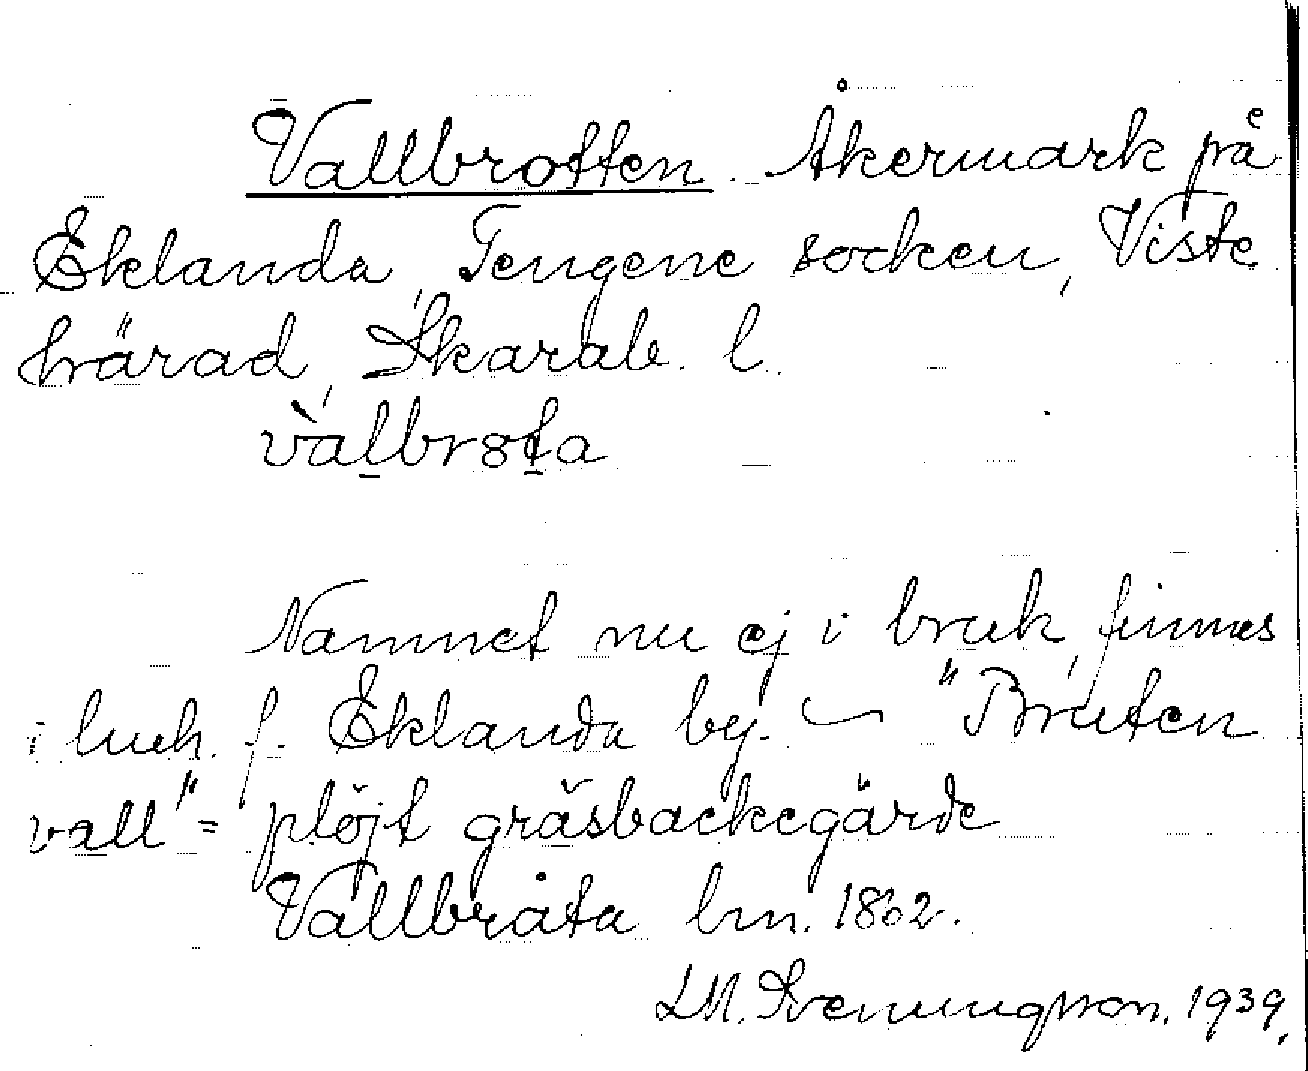 Vallbrotten. Åkermark på
Eklanda, Tengene socken, Viste
härad, Skarab. l.
vàlbr8ta
Namnet nu ej i bruk, finnes
i luch. f. Eklanda by. — "Bruten
vall" = plöjt gräsbackegärde
Vallbråta lm. 1862.
LM. Svenungsson. 1939.